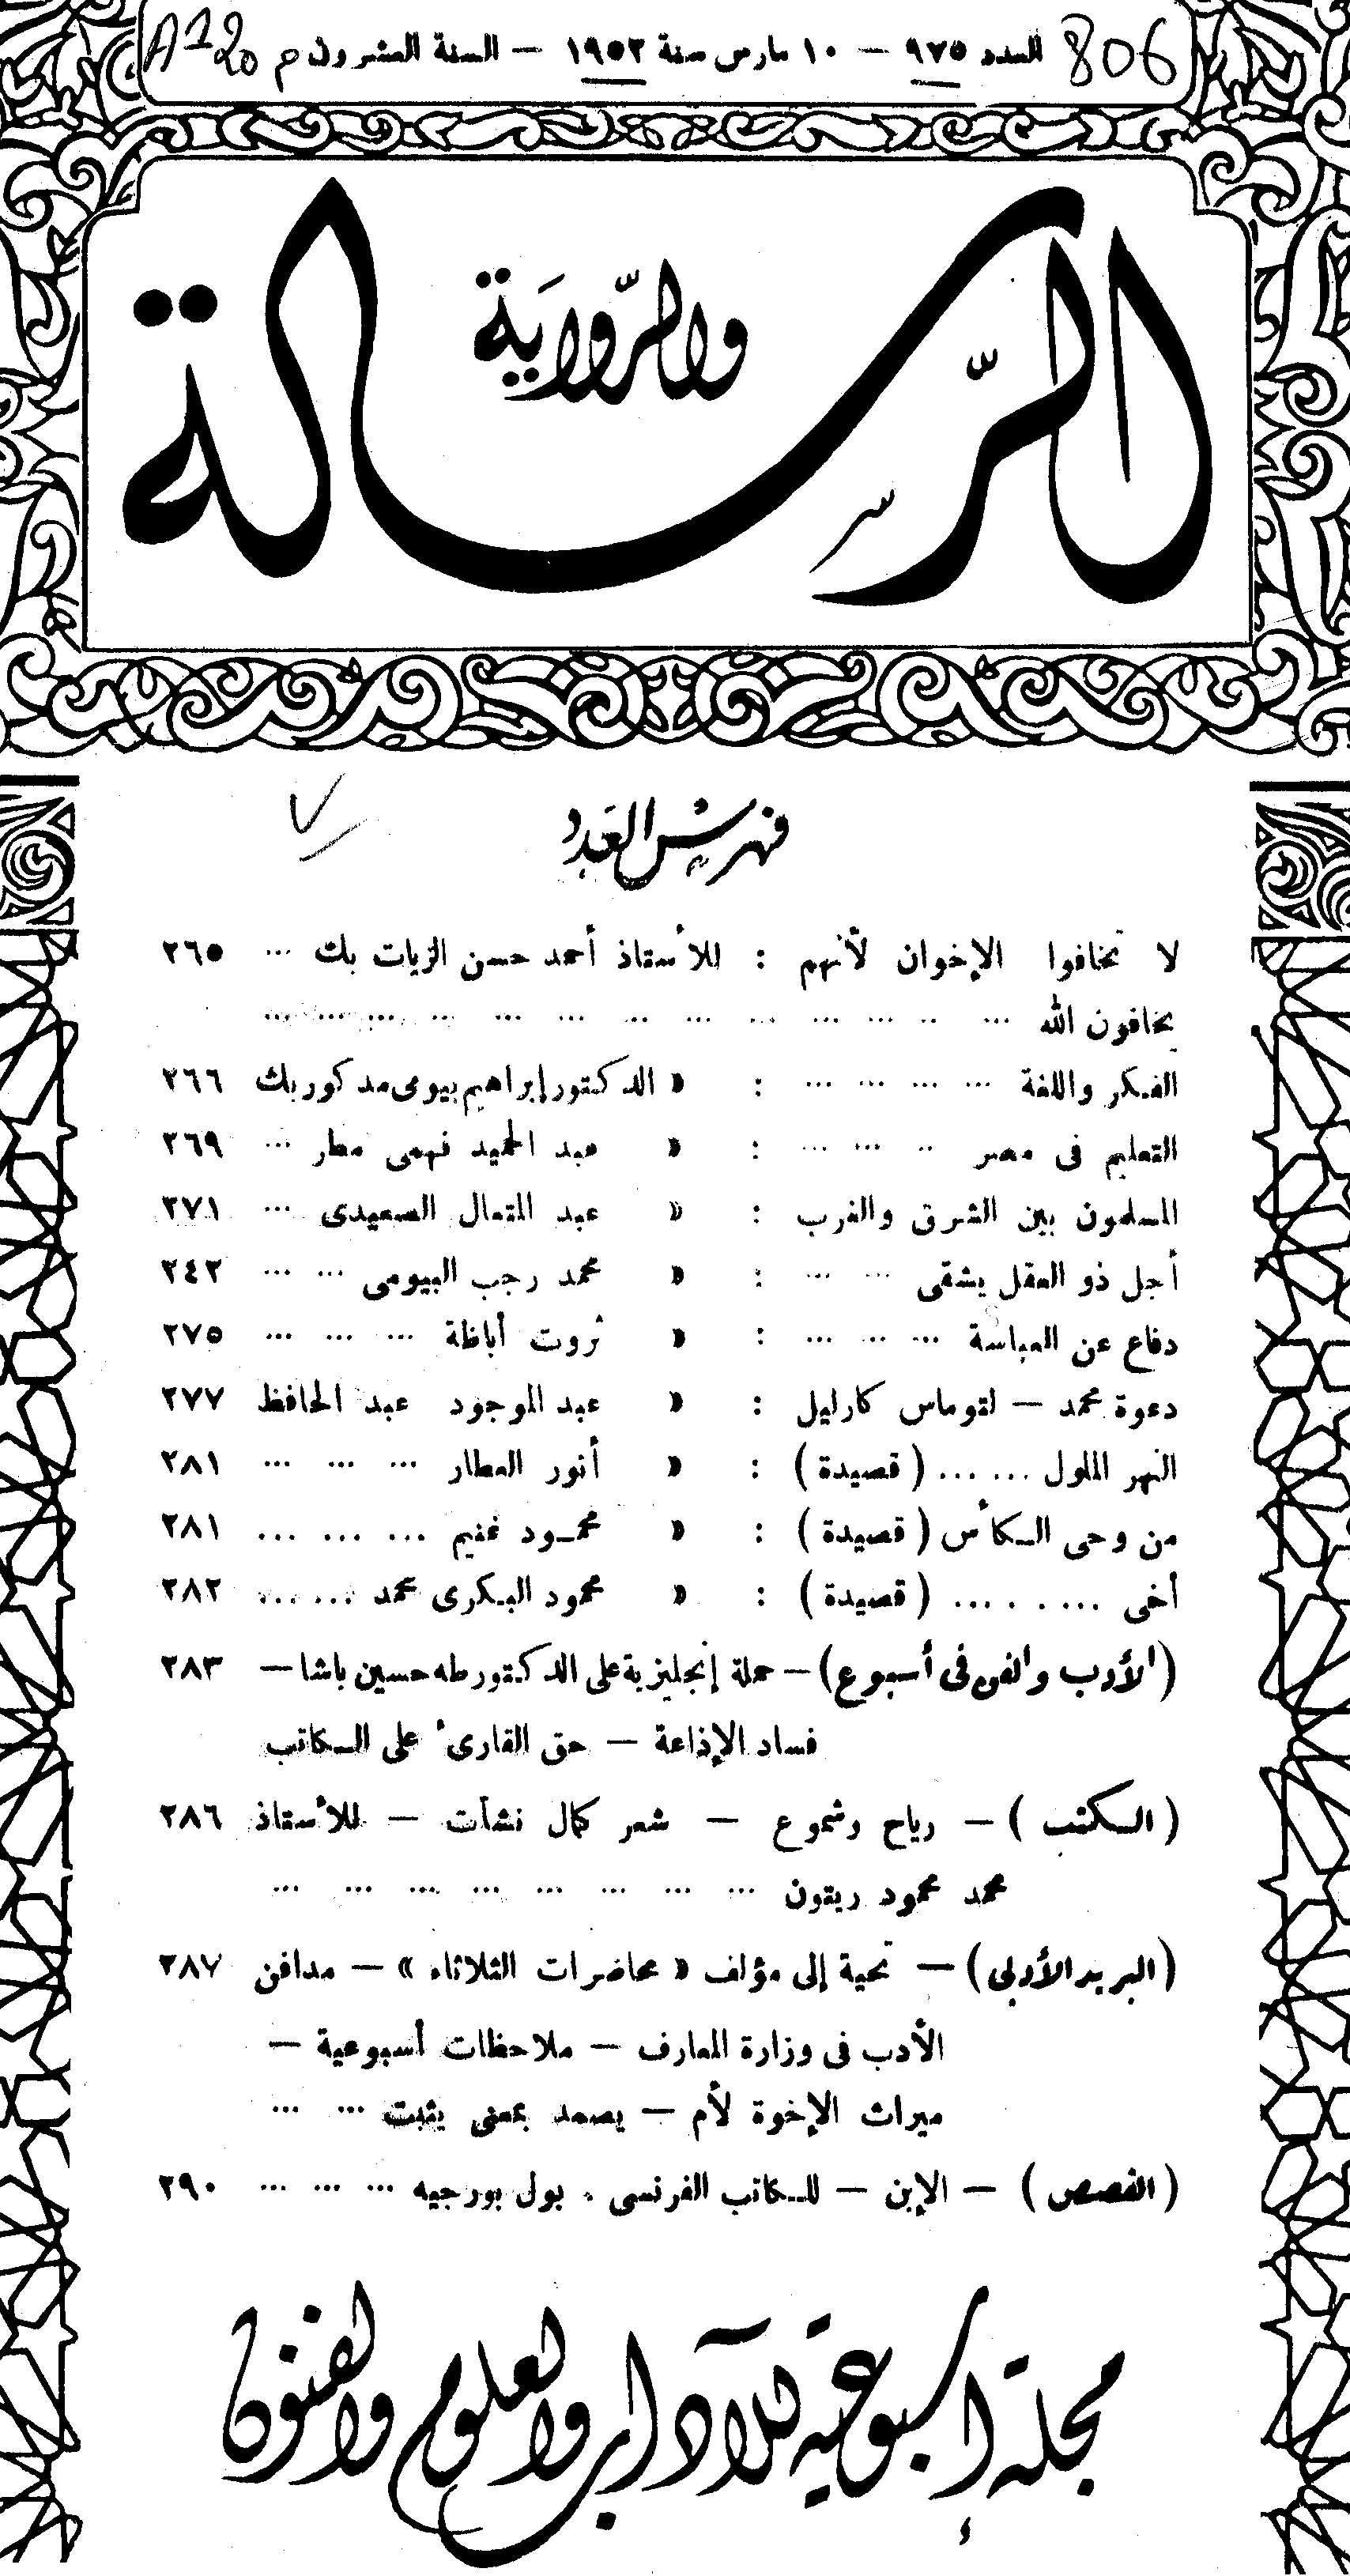 806 العدد ٩٧٥ — ١٠ مارس سنة ١٩٥٢ — السنة العشرون م
الرسالة
والرواية
فهرس العدد
لا تخافوا الإخوان لأنهم : للأستاذ أحمد حسن الزيات بك ... ٢٦٥
يخافون الله ... ... ... ... ... ... ... ... ... ... ... ...
الفكر واللغة ... ... ... ... : » الدكتور إبراهيم بيومى مدكور بك ٢٦٦
التعليم فى مصر ... ... ... : » عبد الحميد فهمى مطر ... ٢٦٩
المسلمون بين الشرق والغرب : » عبد المتعال الصعيدى ... ٢٧١
أجل ذو العقل يشقى ... ... : » محمد رجب البيومى ... ... ٢٤٢
دفاع عن العباسة ... ... ... : » ثروت أباظة ... ... ... ٢٧٥
دعوة محمد — لتوماس كارليل : » عبد الموجود عبد الحافظ ٢٧٧
النهر الملول ... ... ( قصيدة ) : » أنور العطار ... ... ... ٢٨١
من وحى الكأس ( قصيدة ) : » محمود غنيم ... ... ... ٢٨١
أخى ... . . ... ( قصيدة ) : » محمود البكرى محمد ... ... ٢٨٢
(الأدب والفن فى أسبوع) — حملة إنجليزية على الدكتور طه حسين باشا — ٢٨٣
فساد الإذاعة — حق القارئ على الكاتب
( الكتب ) — رياح وشموع — شعر كمال نشأت — للأستاذ ٢٨٦
محمد محمود زيتون ... ... ... ... ... ... ... ...
(البريد الأدبى) — تحية إلى مؤلف « محاضرات الثلاثاء » — مدافن ٢٨٧
الأدب فى وزارة المعارف — ملاحظات أسبوعية —
ميراث الإخوة لأم — يصمد بمعنى يثبت ... ...
( القصص ) — الإبن — للكاتب الفرنسى . بول بورجيه ... ... ... ٢٩٠
مجلة أسبوعية للآداب والعلوم والفنون